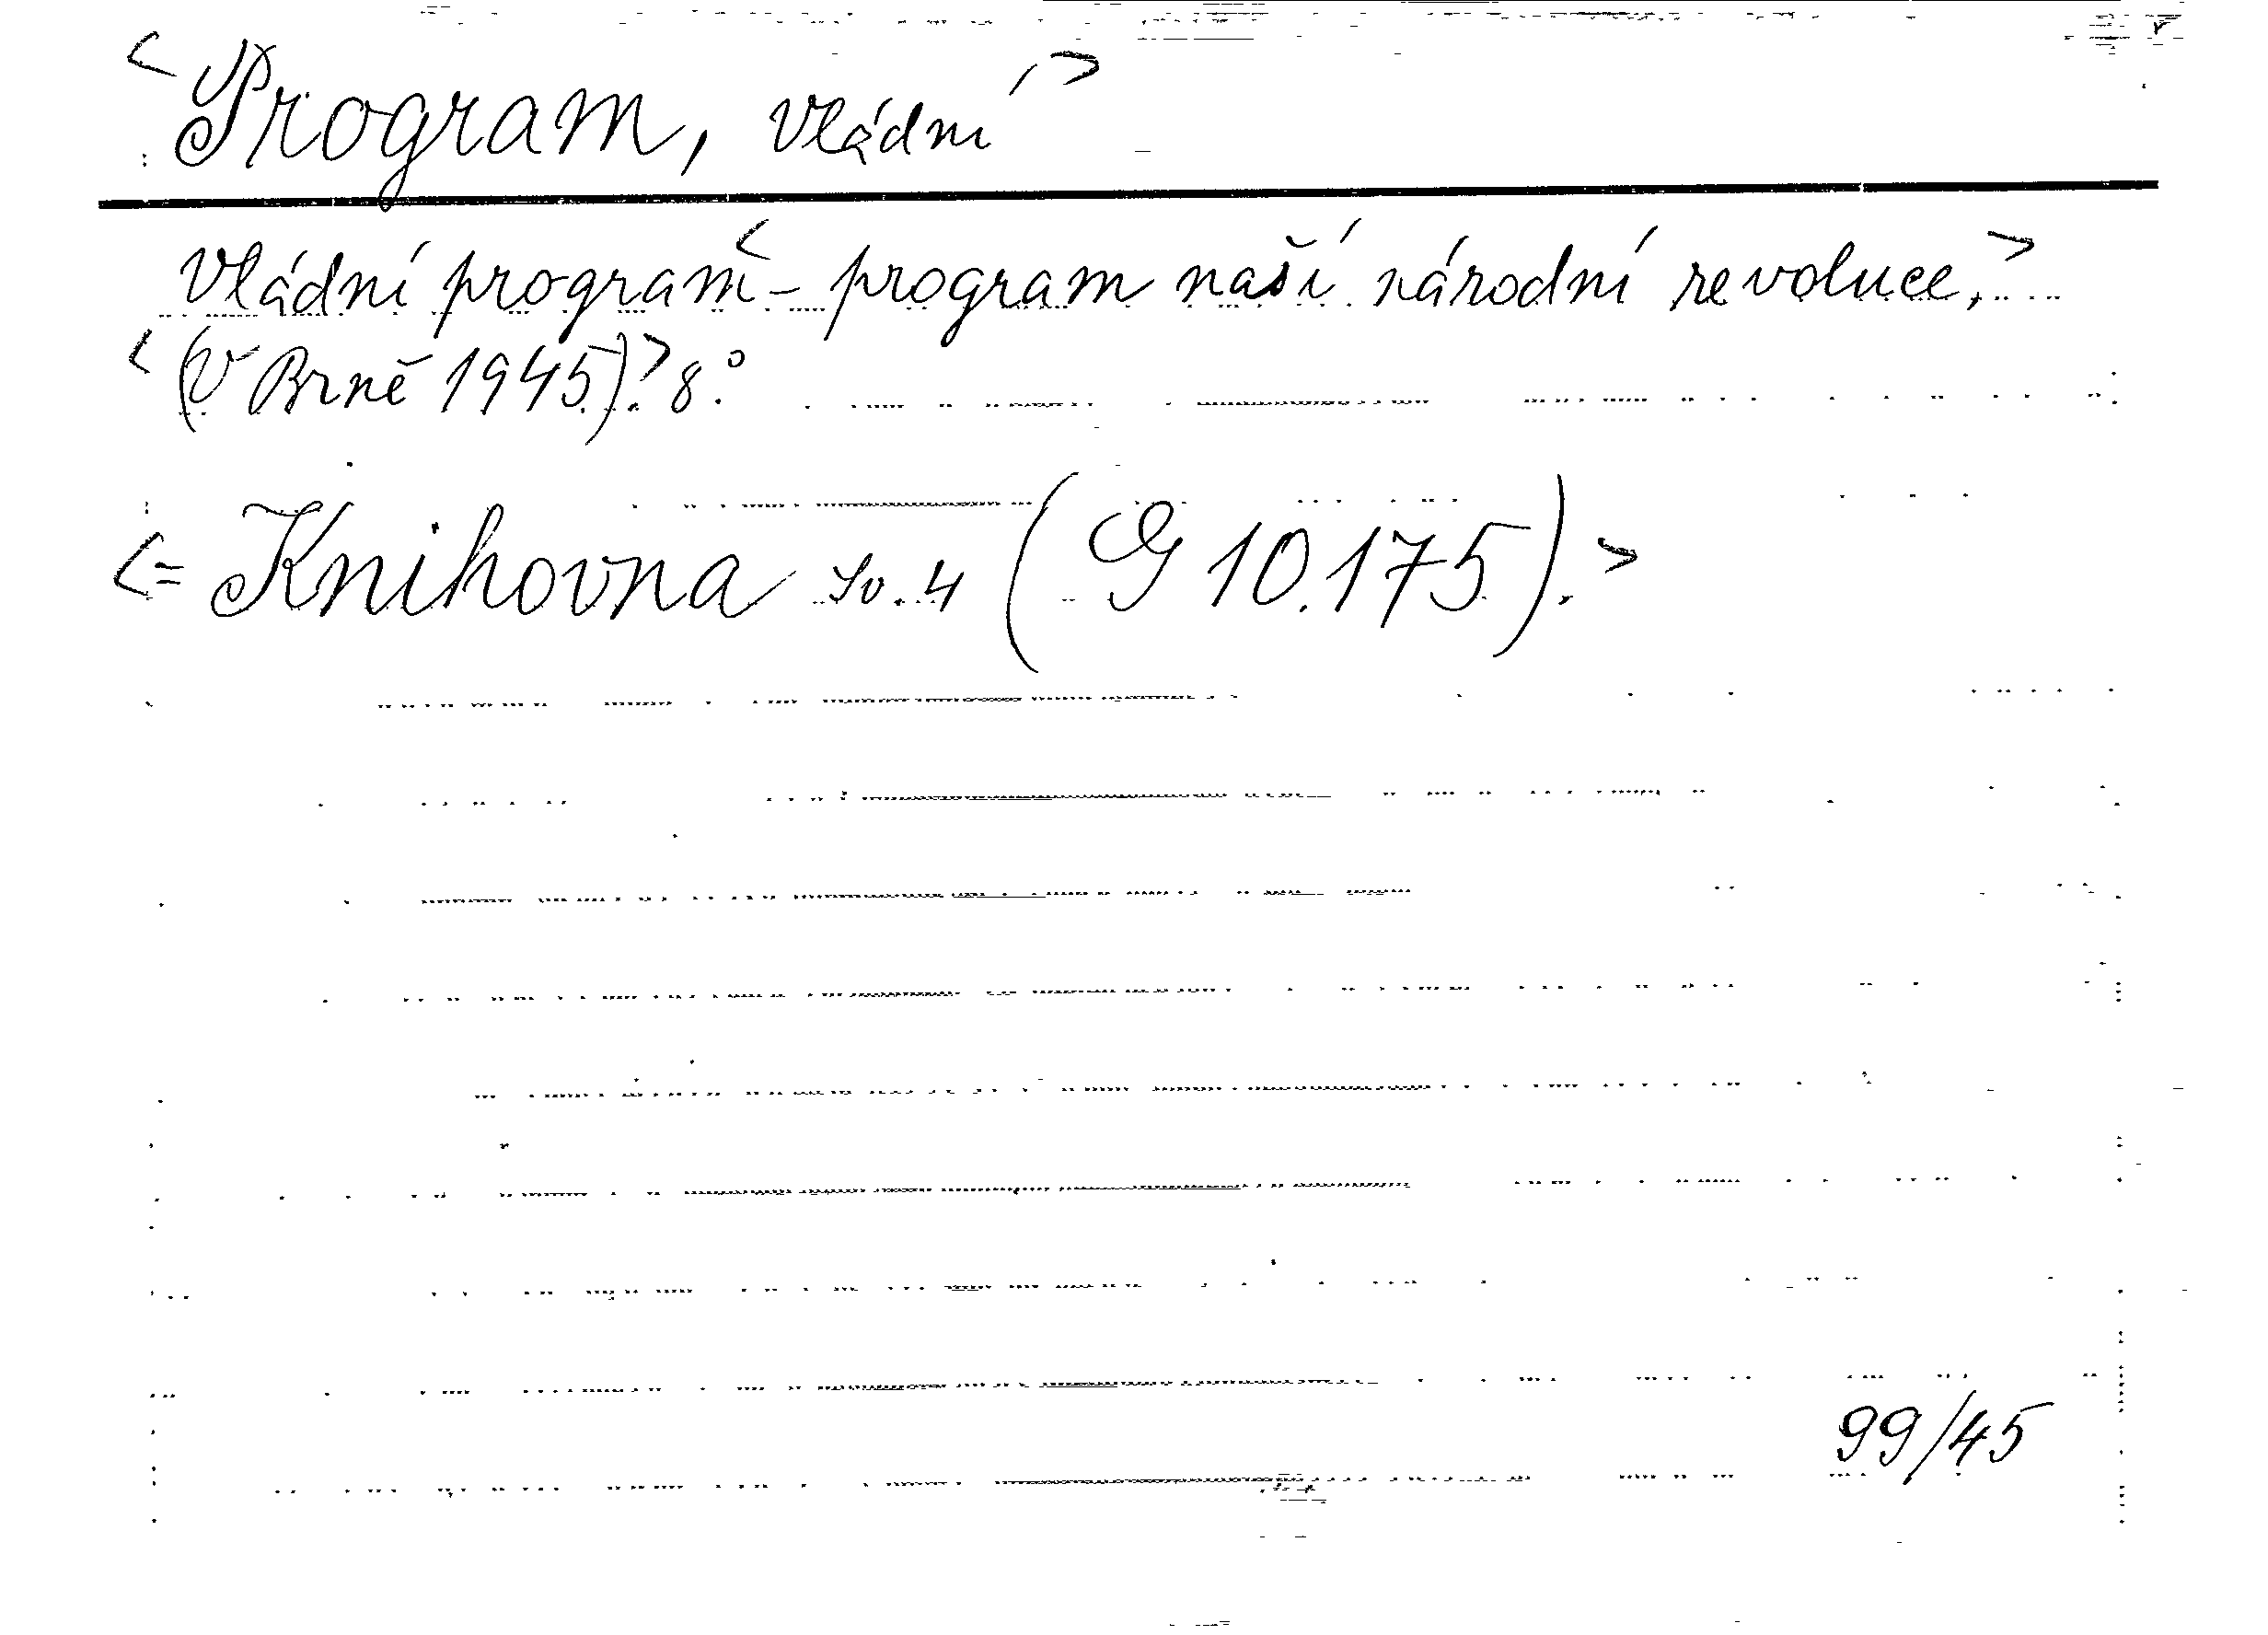 <Program, vládní>
Vládní program <- program naší národní revoluce,>
<(V Brně 1945).> 8°.
<= Knihovna sv. 4 (G 10.175).>
99/45